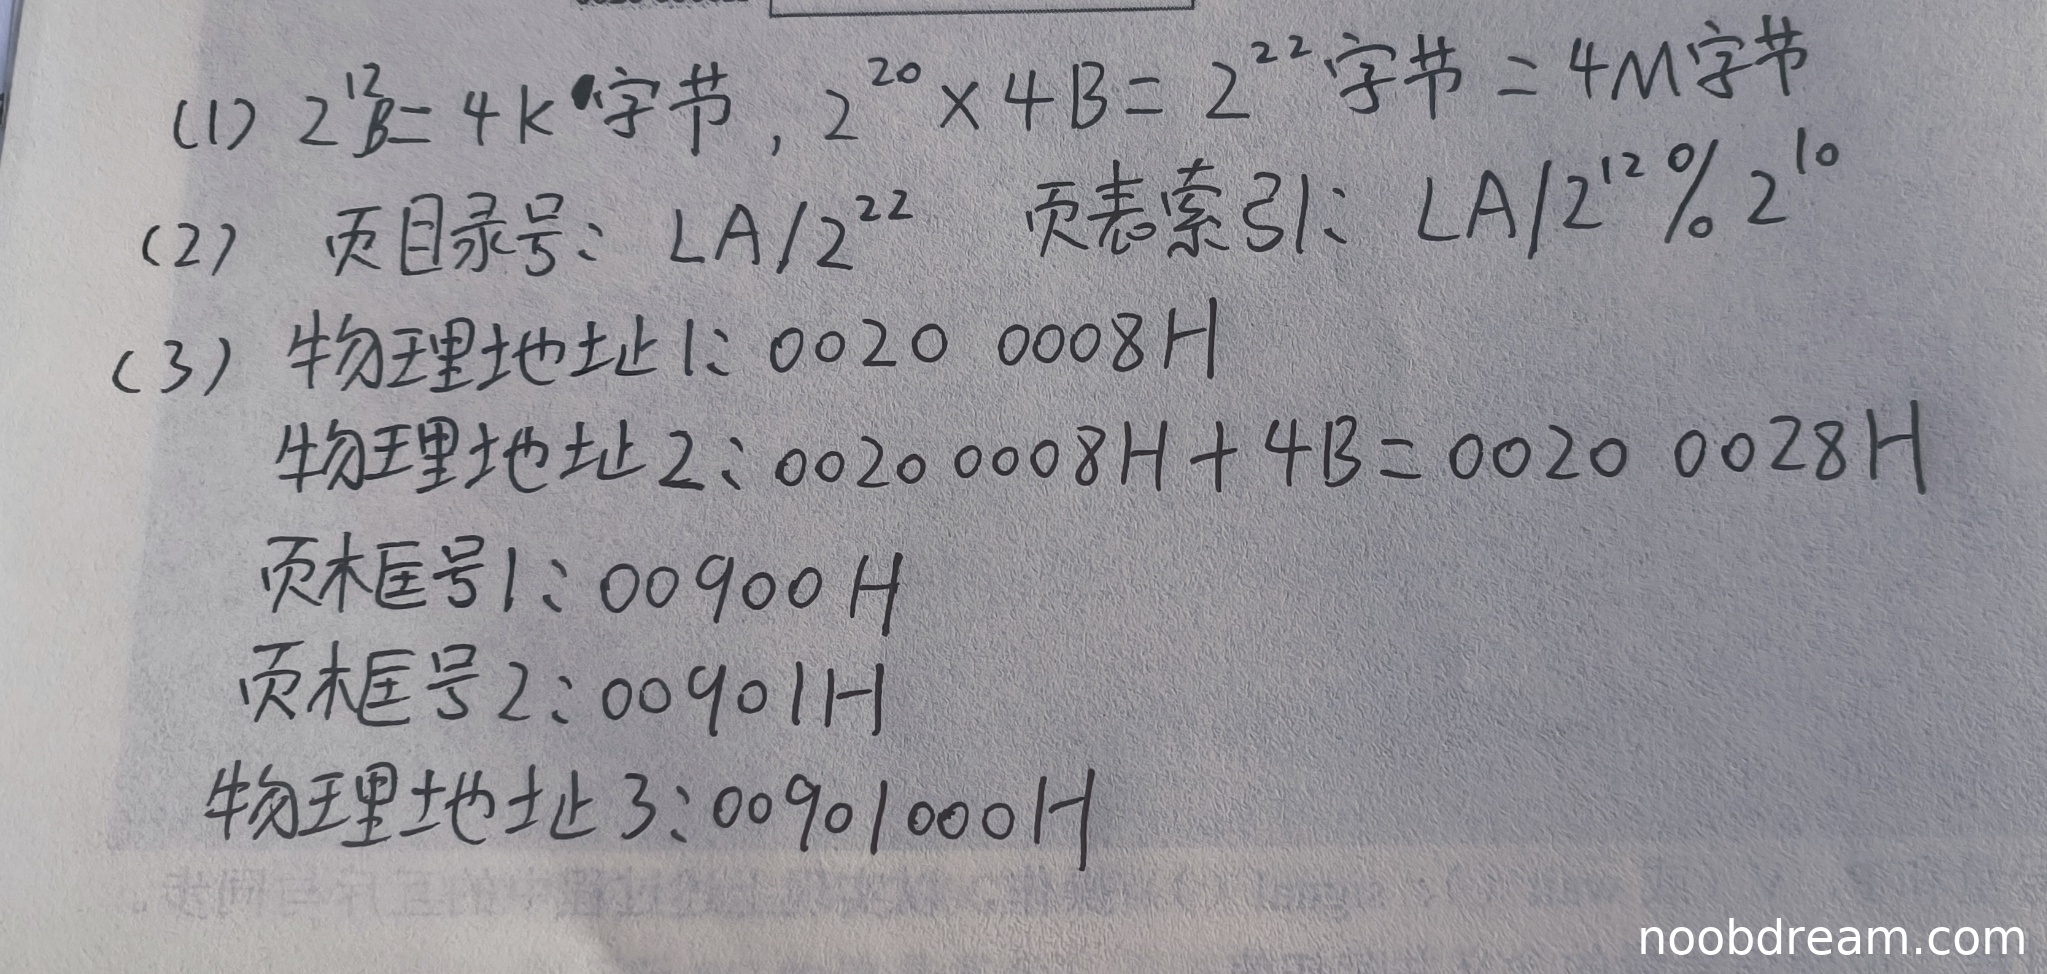 (1) 2¹²B = 4K字节, 2²⁰×4B = 2²²字节 = 4M字节
(2) 页目录号: LA/2²² 页表索引: LA/2¹² % 2¹⁰
(3) 物理地址1: 0020 0008H
物理地址2: 0020 0008H + 4B = 0020 0028H
页框号1: 00900H
页框号2: 00901H
物理地址3: 00901000H
noobdream.com